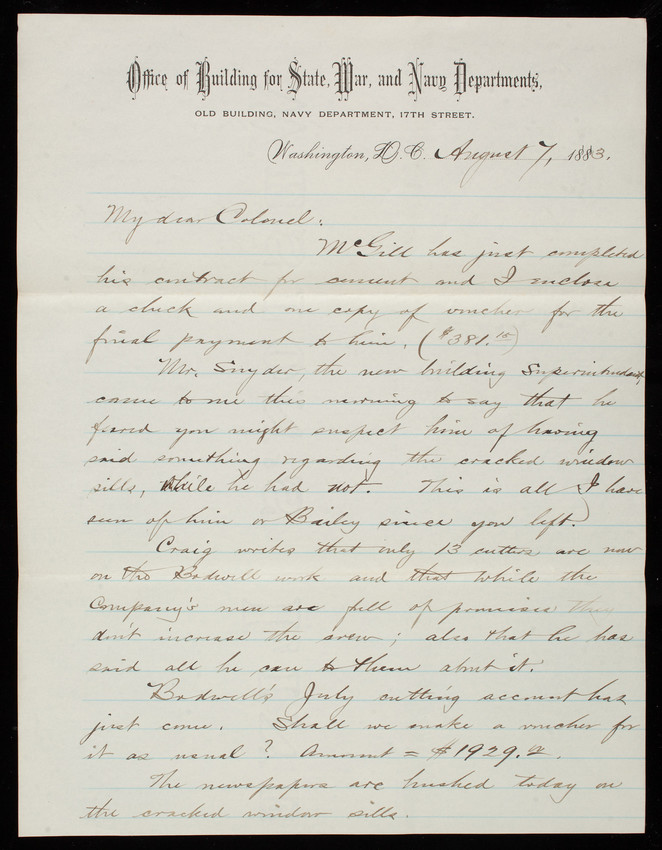 Office of Building for State, War, and Navy Departments,
OLD BUILDING, NAVY DEPARTMENT, 17TH STREET.
Washington, D.C. August 7, 1883.
My dear Colonel:
McGill has just completed
his contract for cement and I enclose
a check and one copy of voucher for the
final payment to him. ($381.15)
Mr. Snyder, the new building Superintendent,
came to me this morning to say that he
feared you might suspect him of having
said something regarding the cracked window
sills, while he had not. This is all I have
seen of him or Bailey since you left.
Craig writes that only 13 cutters are now
on the Bodwell work and that while the
Company's men are full of promises they
don't increase the crew; also that he has
said all he can to them about it.
Bodwell's July cutting account has
just come. Shall we make a voucher for
it as usual? Amount = $1929.
The newspapers are hushed today on
the cracked window sills.